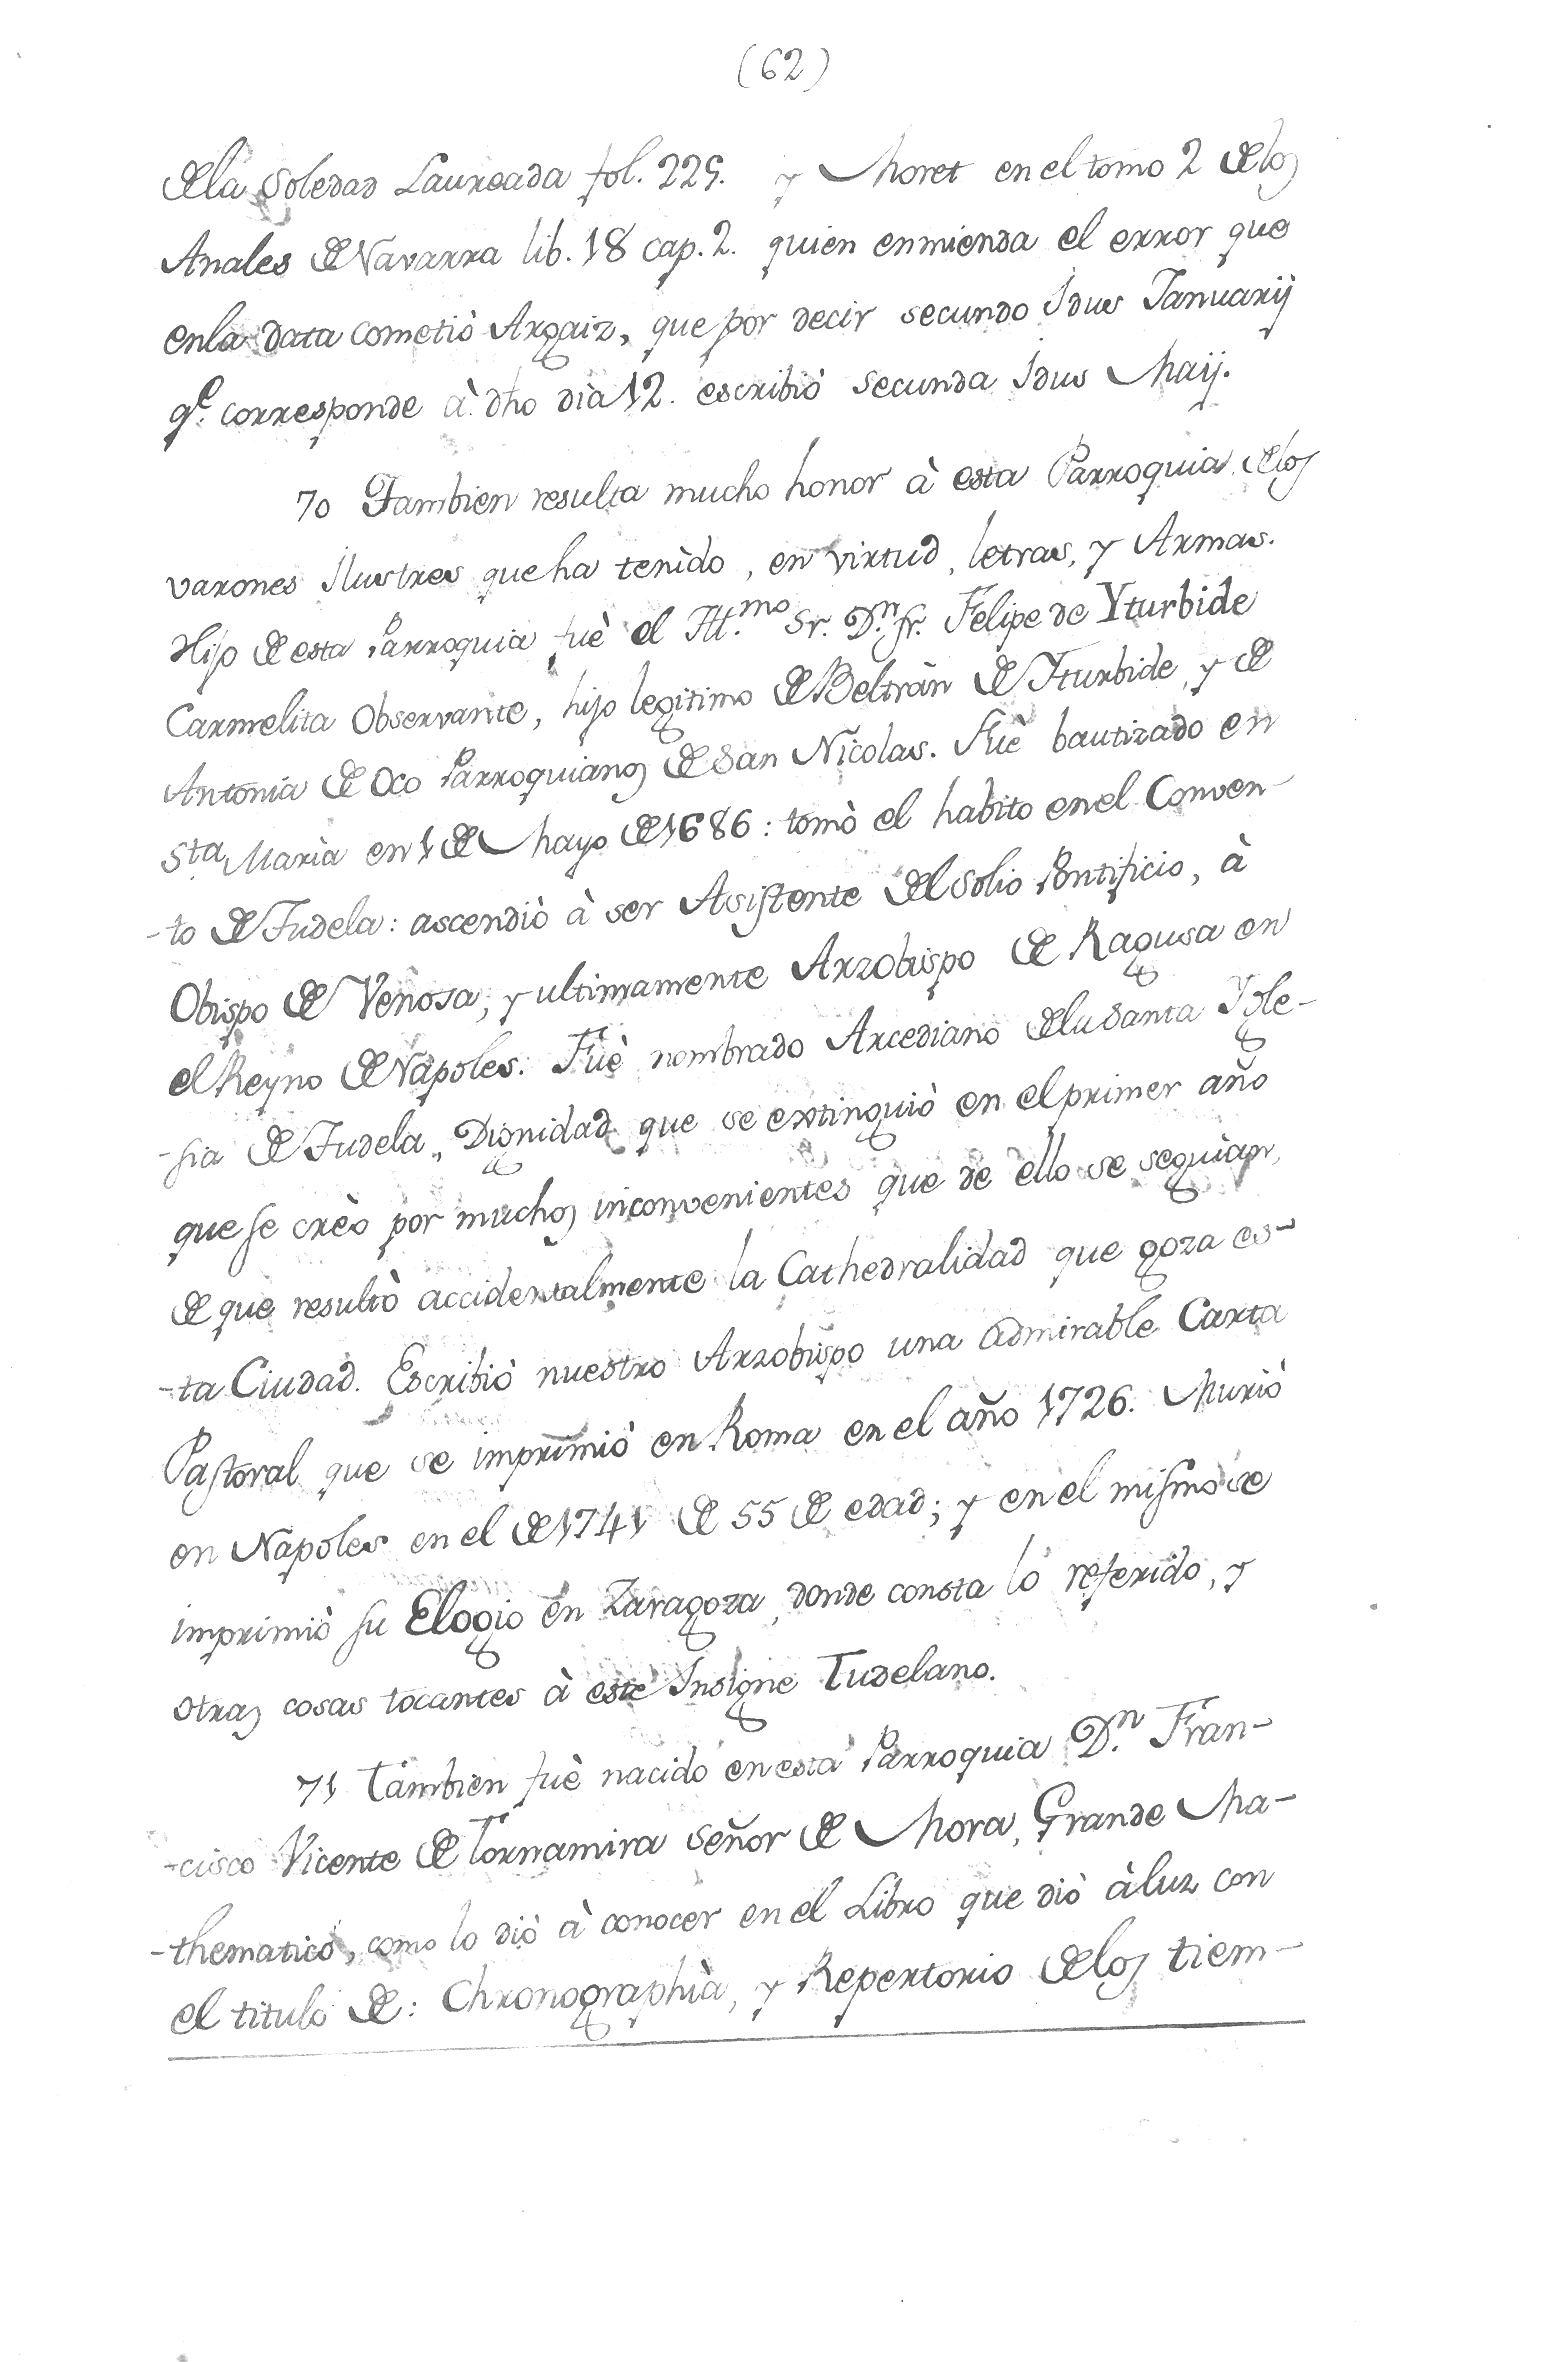 (62)
de la Soledad Laureada fol. 225. y Moret en el tomo 2 de los
Anales de Navarra lib. 18 cap. 2. quien enmienda el error que
en la data cometiò Argaiz, que por decir secundo Idus Januarij
q.e corresponde à dho dia 12. escribiò secunda Idus Maij.
70 Tambien resulta mucho honor à esta Parroquia de los
varones ilustres que ha tenido, en virtud, letras, y Armas.
Hijo de esta Parroquia fuè el Ill.mo Sr. D.n fr. Felipe de Yturbide
Carmelita Observante, hijo legitimo de Beltràn de Yturbide, y de
Antonia de Oco Parroquianos de San Nicolas. Fuè bautizado en
Sta. Marìa en 1 de Mayo de 1686: tomò el habito en el Conven-
-to de Tudela: ascendiò à ser Asistente del solio Pontificio, à
Obispo de Venosa, y ultimamente Arzobispo de Ragusa en
el Reyno de Napoles. Fuè nombrado Arcediano de la Santa Ygle-
-sia de Tudela, Dignidad que se extinguiò en el primer año
que se creò por muchos inconvenientes que de ello se seguian,
de que resultò accidentalmente la Cathedralidad que goza es-
-ta Ciudad. Escribiò nuestro Arzobispo una admirable Carta
Pastoral que se imprimiò en Roma en el año 1726. Muriò
en Napoles en el de 1741 de 55 de edad; y en el mismo se
imprimiò su Elogio en Zaragoza, donde consta lo referido, y
otras cosas tocantes à este Insigne Tudelano.
71 Tambien fuè nacido en esta Parroquia D.n Fran-
-cisco Vicente de Tornamira señor de Mora, Grande Ma-
-thematico, como lo diò à conocer en el Libro que diò à luz con
el titulo de: Chronographìa, y Repertorio de los tiem-